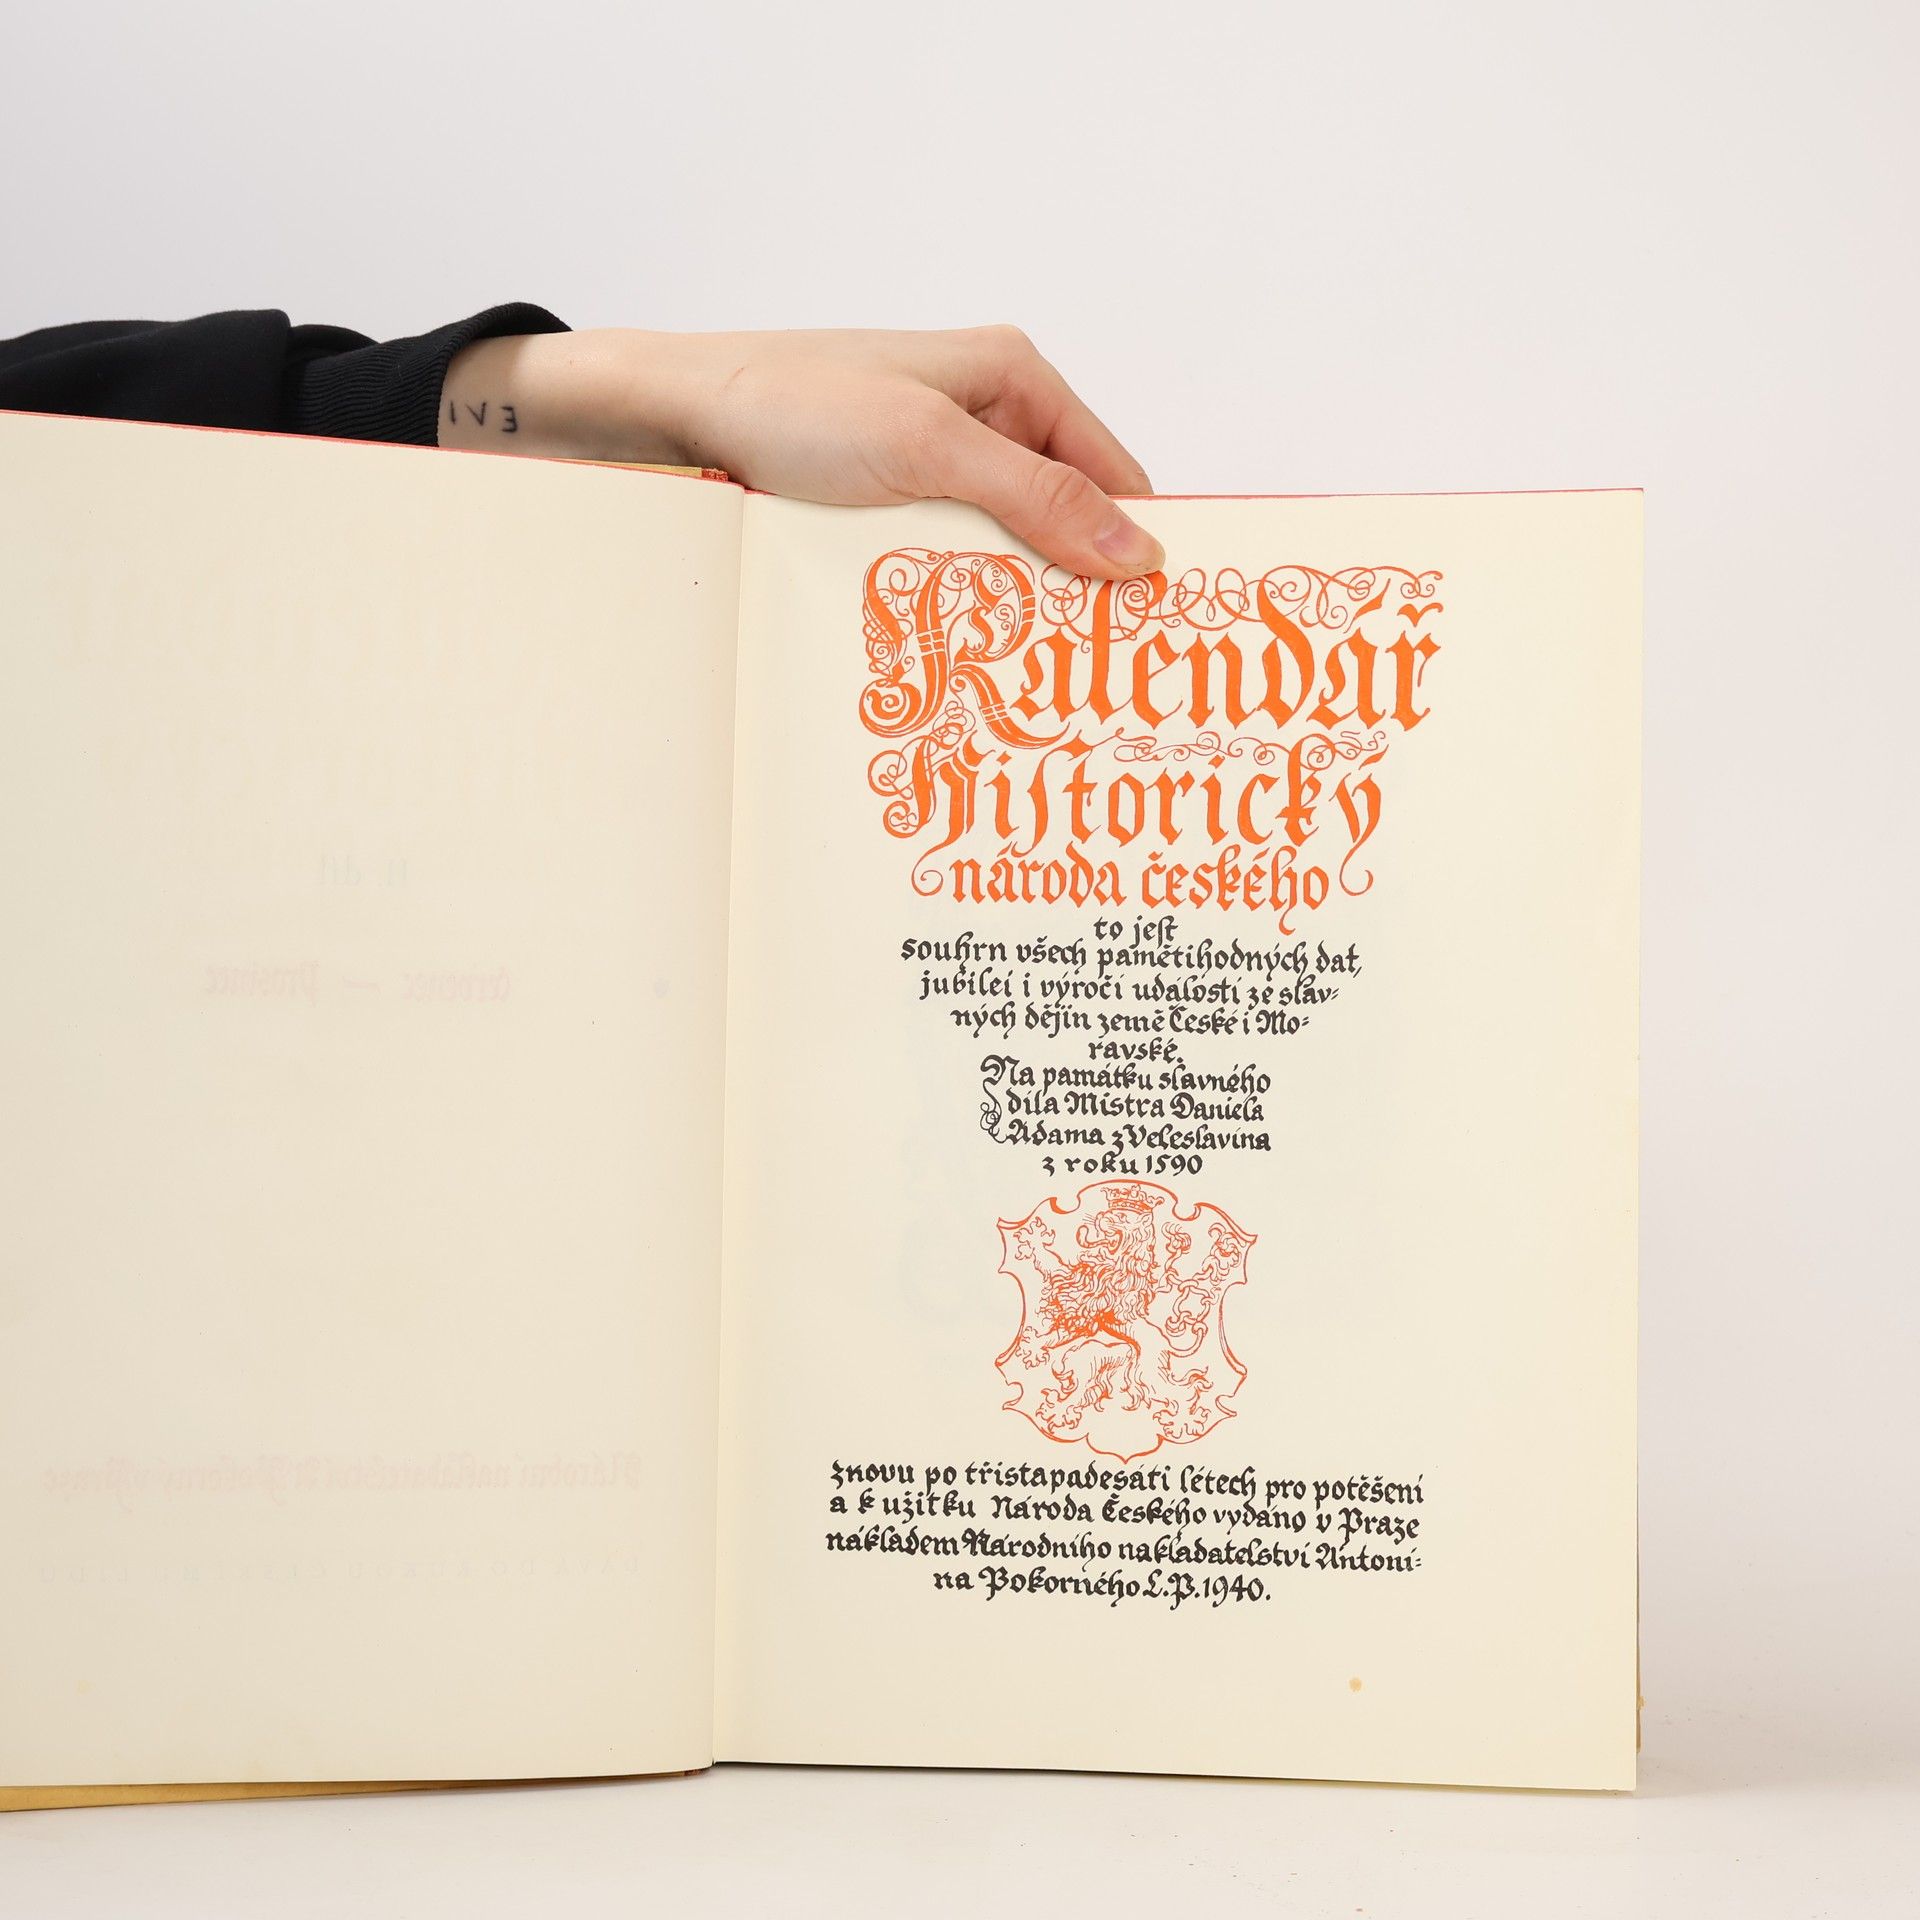 Kalendář
Historický
národa českého
to jest
souhrn všech pamětihodných dat,
jubileí i výročí událostí ze slav-
ných dějin země České i Mo-
ravské.
Na památku slavného
díla Mistra Daniela
Adama z Veleslavína
z roku 1590
znovu po třistapadesáti létech pro potěšení
a k užitku Národa Českého vydáno v Praze
nákladem Národního nakladatelství Antoní-
na Pokorného L.P.1940.